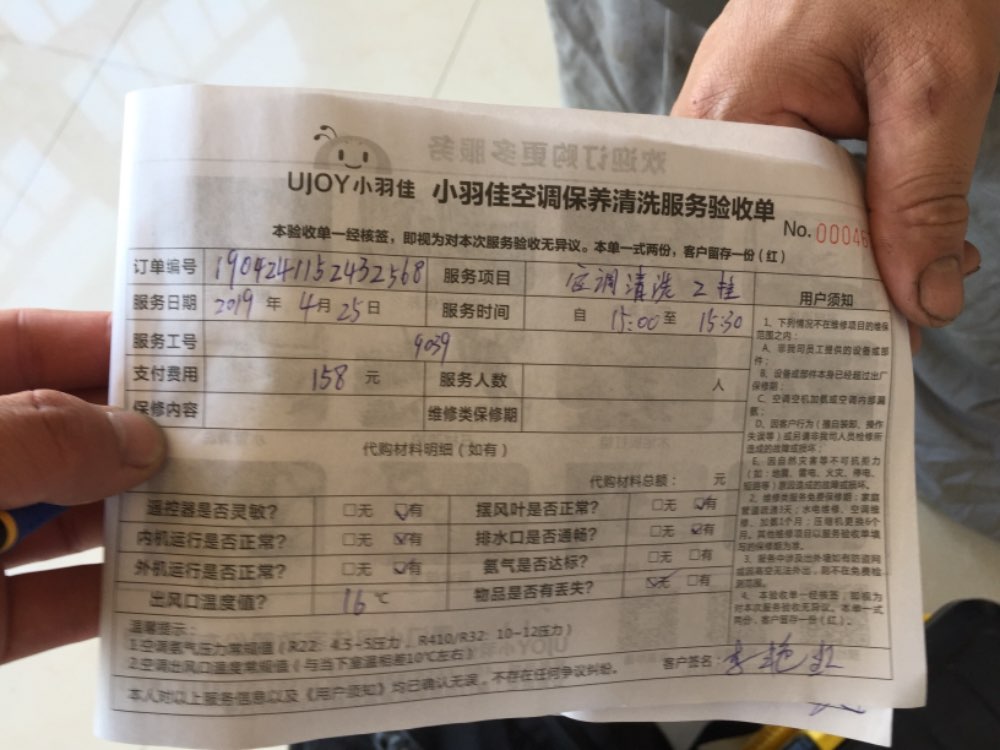 UJOY小羽佳 小羽佳空调保养清洗服务验收单
No. 00046
本验收单一经核签，即视为对本次服务验收无异议。本单一式两份，客户留存一份（红）
订单编号 1904241152432568 服务项目 空调清洗 2挂
服务日期 2019 年 4 月 25 日 服务时间 自 15:00 至 15:30
服务工号 9039
支付费用 158 元 服务人数 人
保修内容 维修类保修期
代购材料明细（如有）
代购材料总额： 元
遥控器是否灵敏？ □无 ☑有 摆风叶是否正常？ □无 ☑有
内机运行是否正常？ □无 ☑有 排水口是否通畅？ □无 ☑有
外机运行是否正常？ □无 ☑有 氨气是否达标？ □无 □有
出风口温度值？ 16 ℃ 物品是否有丢失？ ☑无 □有
温馨提示：
1.空调氨气压力常规值（R22：4.5-5压力，R410/R32：10-12压力）
2.空调出风口温度常规值（与当下室温相差10℃左右）
客户签名：
本人对以上服务信息以及《用户须知》均已确认无误，不存在任何争议纠纷。
用户须知
1、下列情况不在维修项目的维保
范围之内：
A、非我司员工提供的设备或部
件；
B、设备或部件本身已经超过出厂
保修期；
C、空调空机加氨或空调内部漏
氨；
D、因客户行为（擅自装卸、操作
失误等）或另请非我司人员检修所
造成的故障或损坏；
E、因自然灾害等不可抗拒力
（如：地震、雷电、火灾、停电、
短路等）原因造成的故障或损坏。
2、维修类服务免费保修期：家庭
管道疏通3天；水电维修、空调维
修、加氨1个月；压缩机更换6个
月。其他维修项目以服务验收单填
写的保修期为准。
3、服务中涉及出外墙如有防盗网
或因高空无法外出，则不在免费检
测范围。
4、本验收单一经核签，即视为
对本次服务验收无异议。本单一式
两份，客户留存一份（红）。